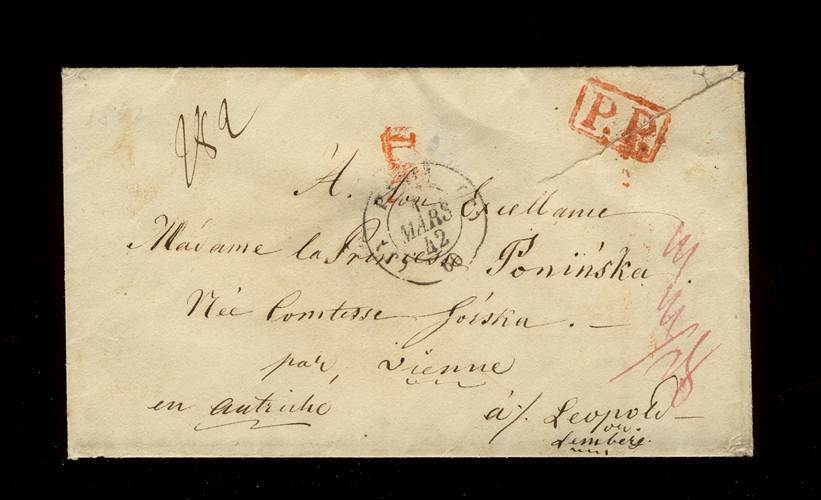 1842
282
P.P.
MARS
42
60
A. Son Exellame
Madame la Princesse Ponińska.
Née Comtesse Górska. –
par Vienne
en autriche
à/. Leopold –
ou
Lemberg.